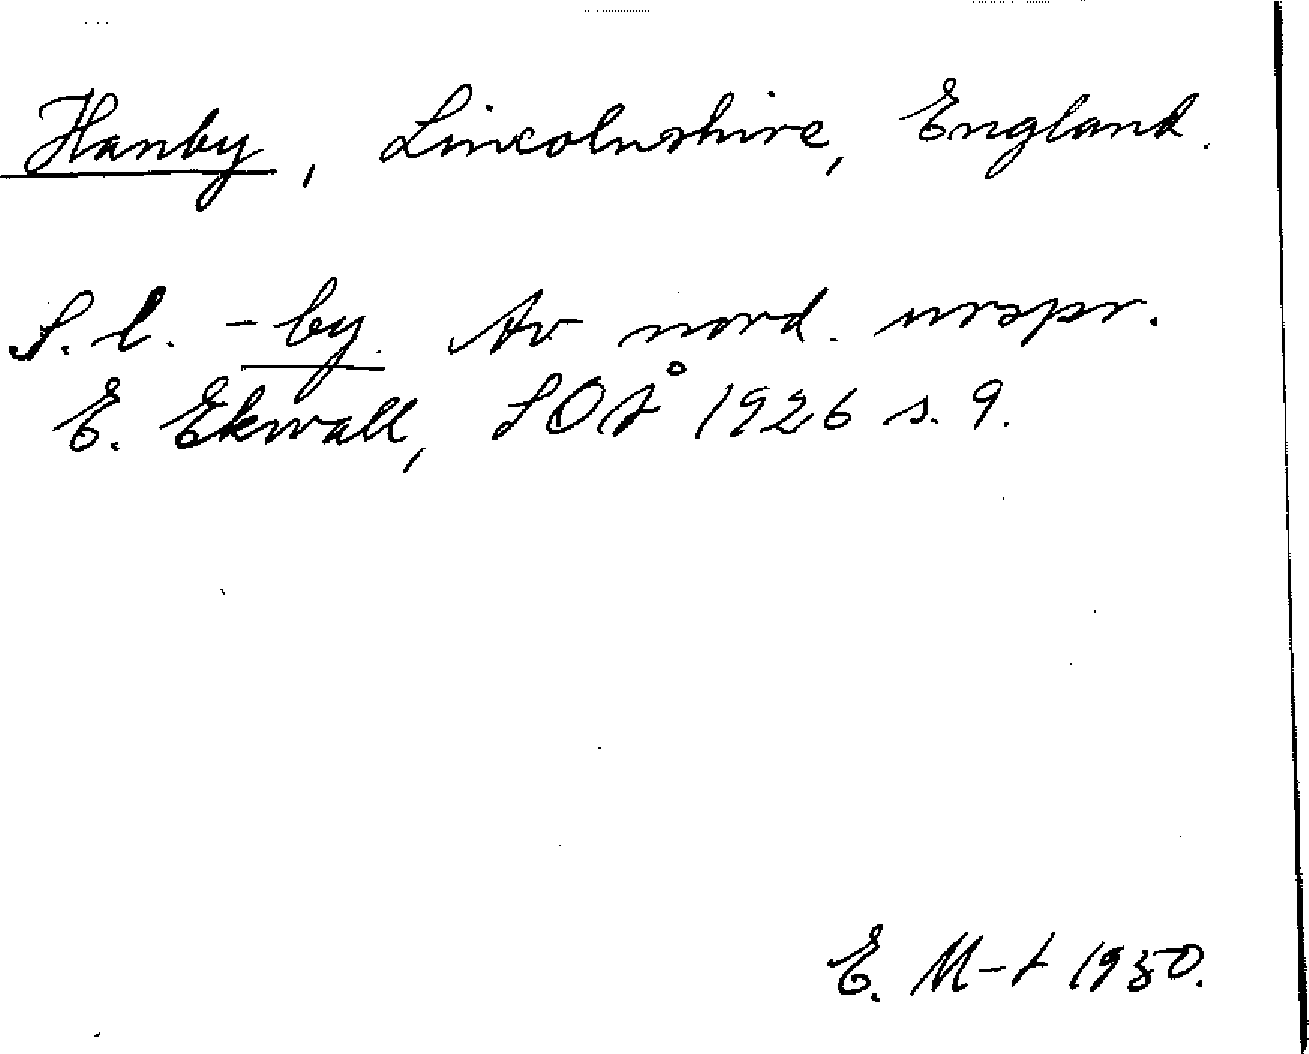 Hanby, Lincolnshire, England.
S. l. -by. Av nord. urspr.
E. Ekwall, SOÅ 1926 s. 9.
E. M-t 1950.